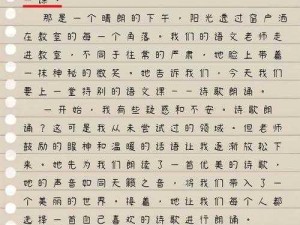 一课。
那是一个晴朗的下午，阳光透过窗户洒
在教室的每一个角落。我们的语文老师走
进教室，不同于往常的严肃，她脸上带着
一抹神秘的微笑。她告诉我们，今天我们
要上一堂特别的语文课——诗歌朗诵。
一开始，我有些疑惑和不安。诗歌朗
诵？这可是我从未尝试过的领域。但老师
鼓励的眼神和温暖的话语让我逐渐放松下
来。她先为我们朗读了一首优美的诗歌，
她的声音如同天籁之音，将我们带入了一
个美丽的世界。接着，她让我们每个人都
选择一首自己喜欢的诗歌进行朗诵。